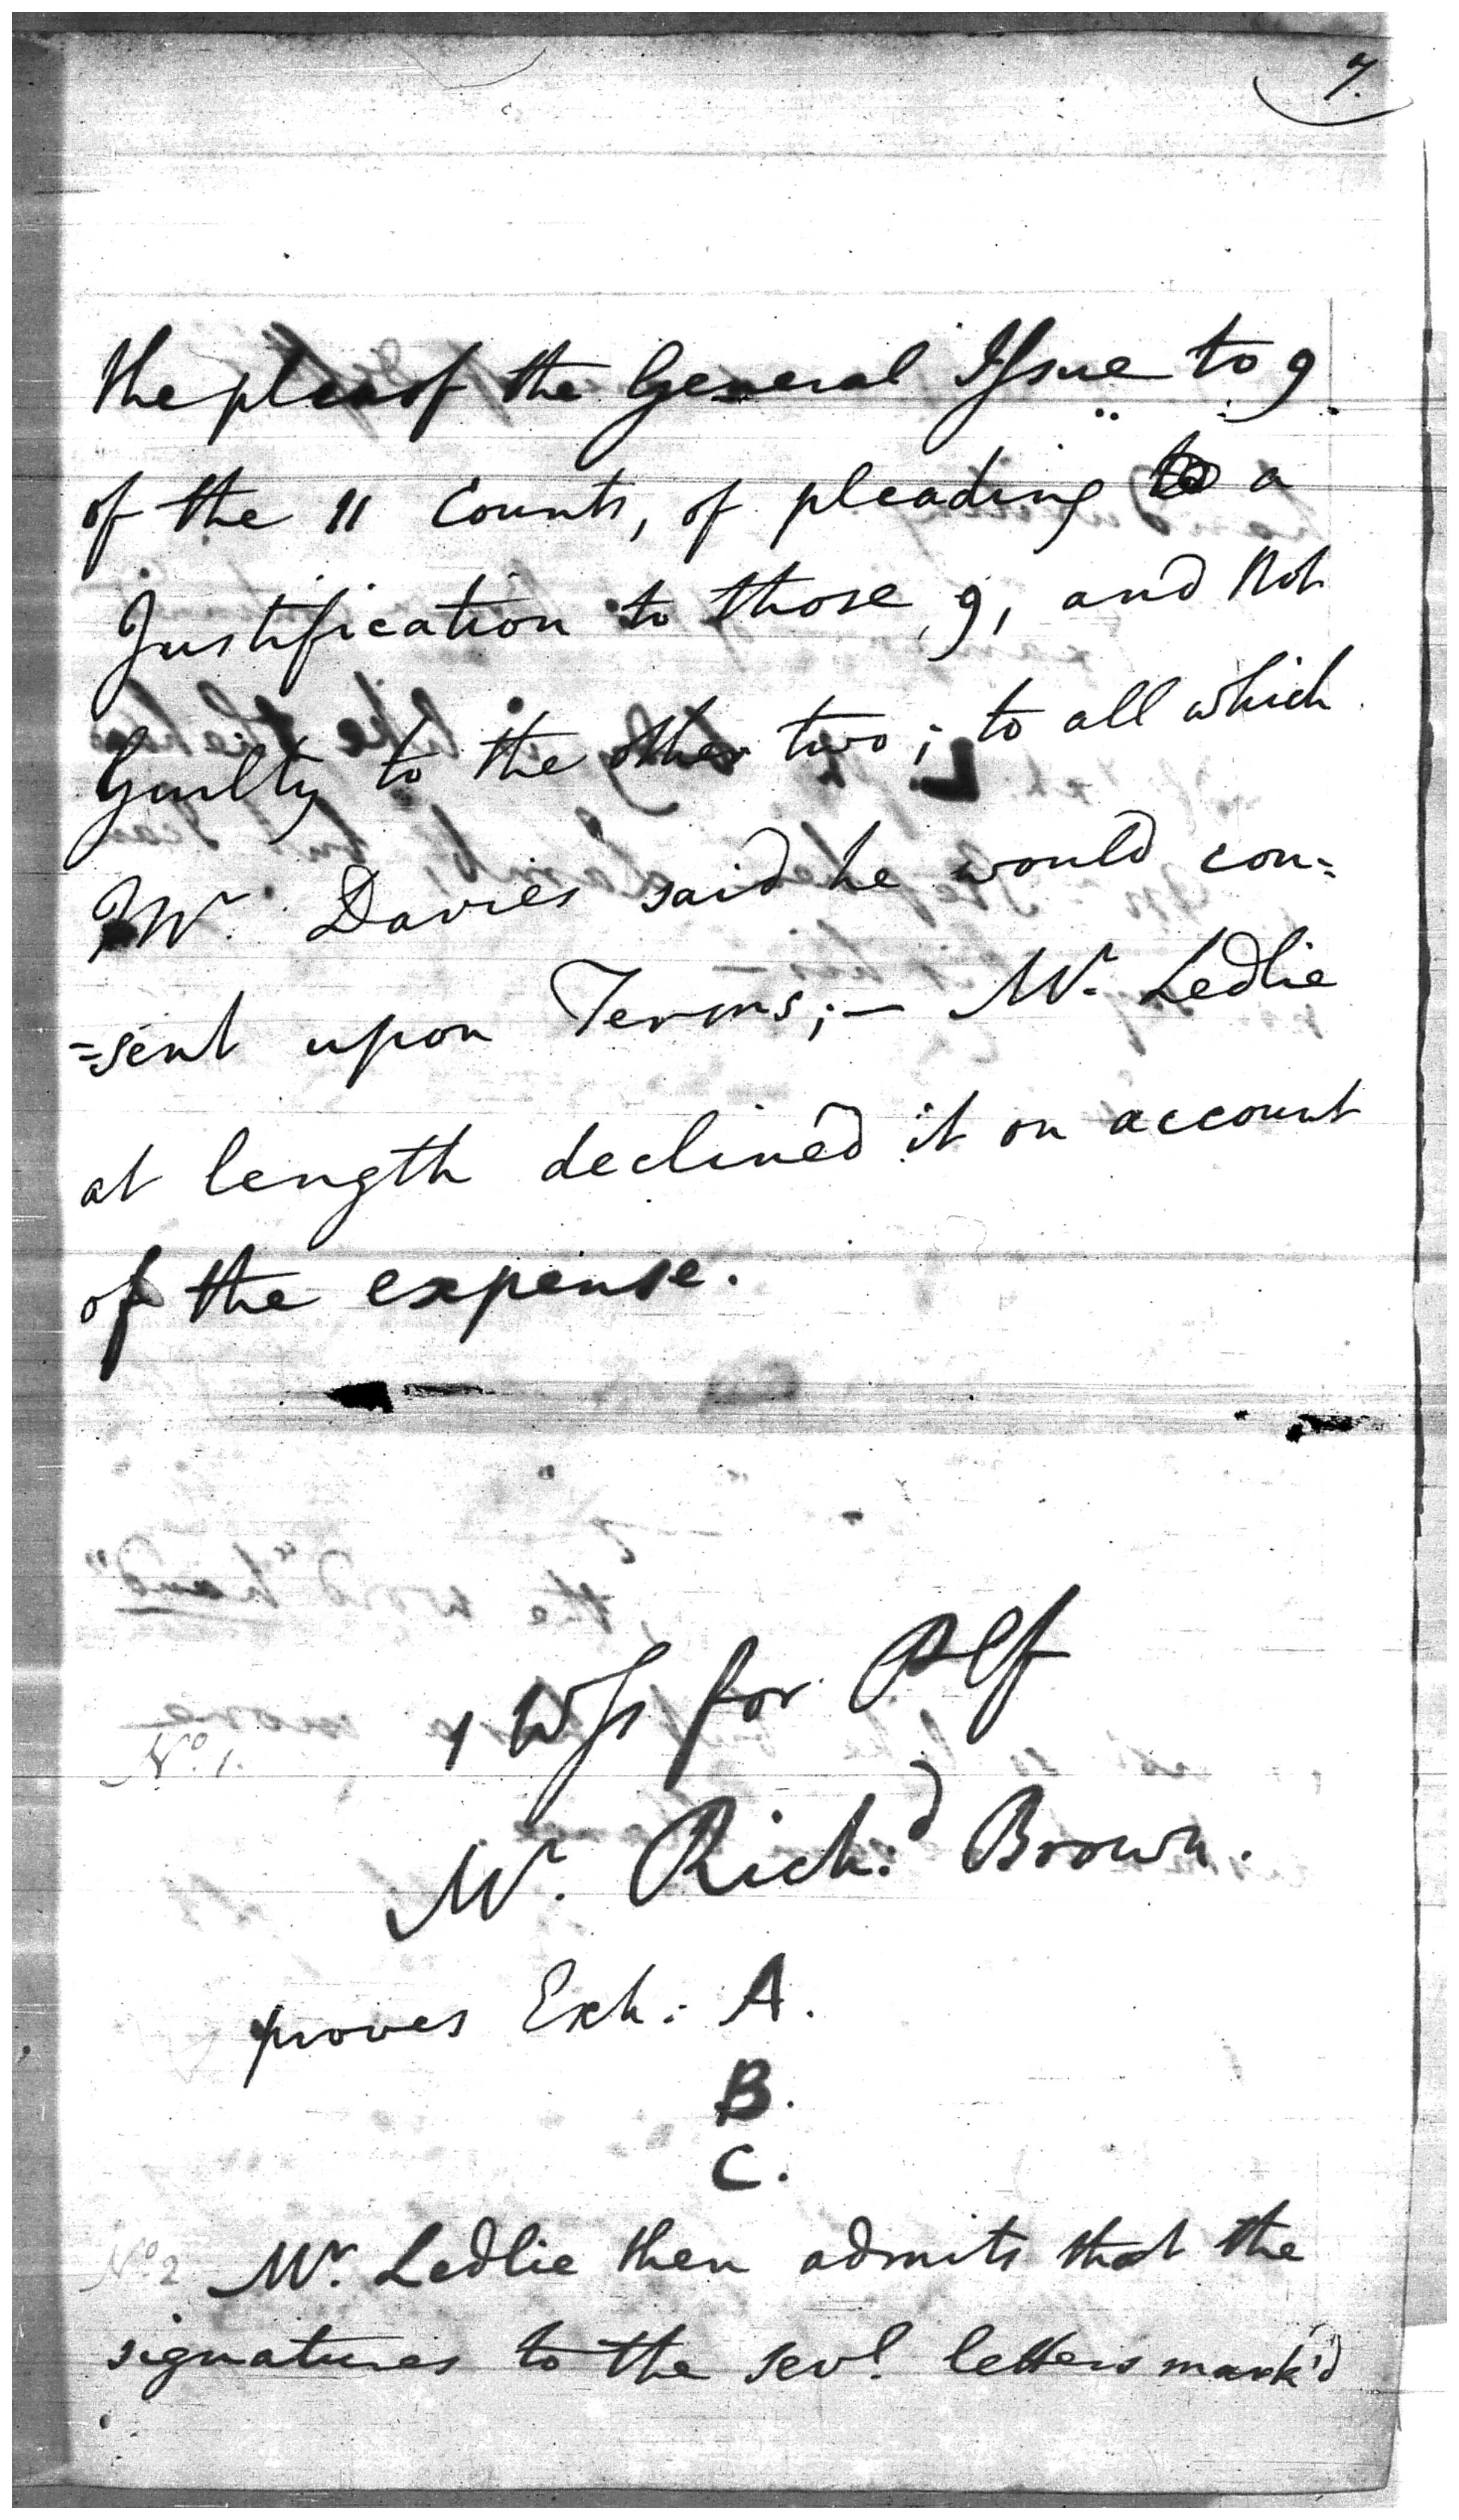 7.
the plea of the General Issue to 9
of the 11 Counts, of pleading a
Justification to those 9, and Not
Guilty to the other two; to all which
Mr. Davies said he would con=
=sent upon Terms;— Mr. Ledlie
at length declined it on account
of the expense.
1 Wss for Plf
No. 1.
Mr. Rich:d Brown.
proves Exh: A.
B.
C.
No 2 Mr. Ledlie then admits that the
signatures to the sevl. letters mark'd